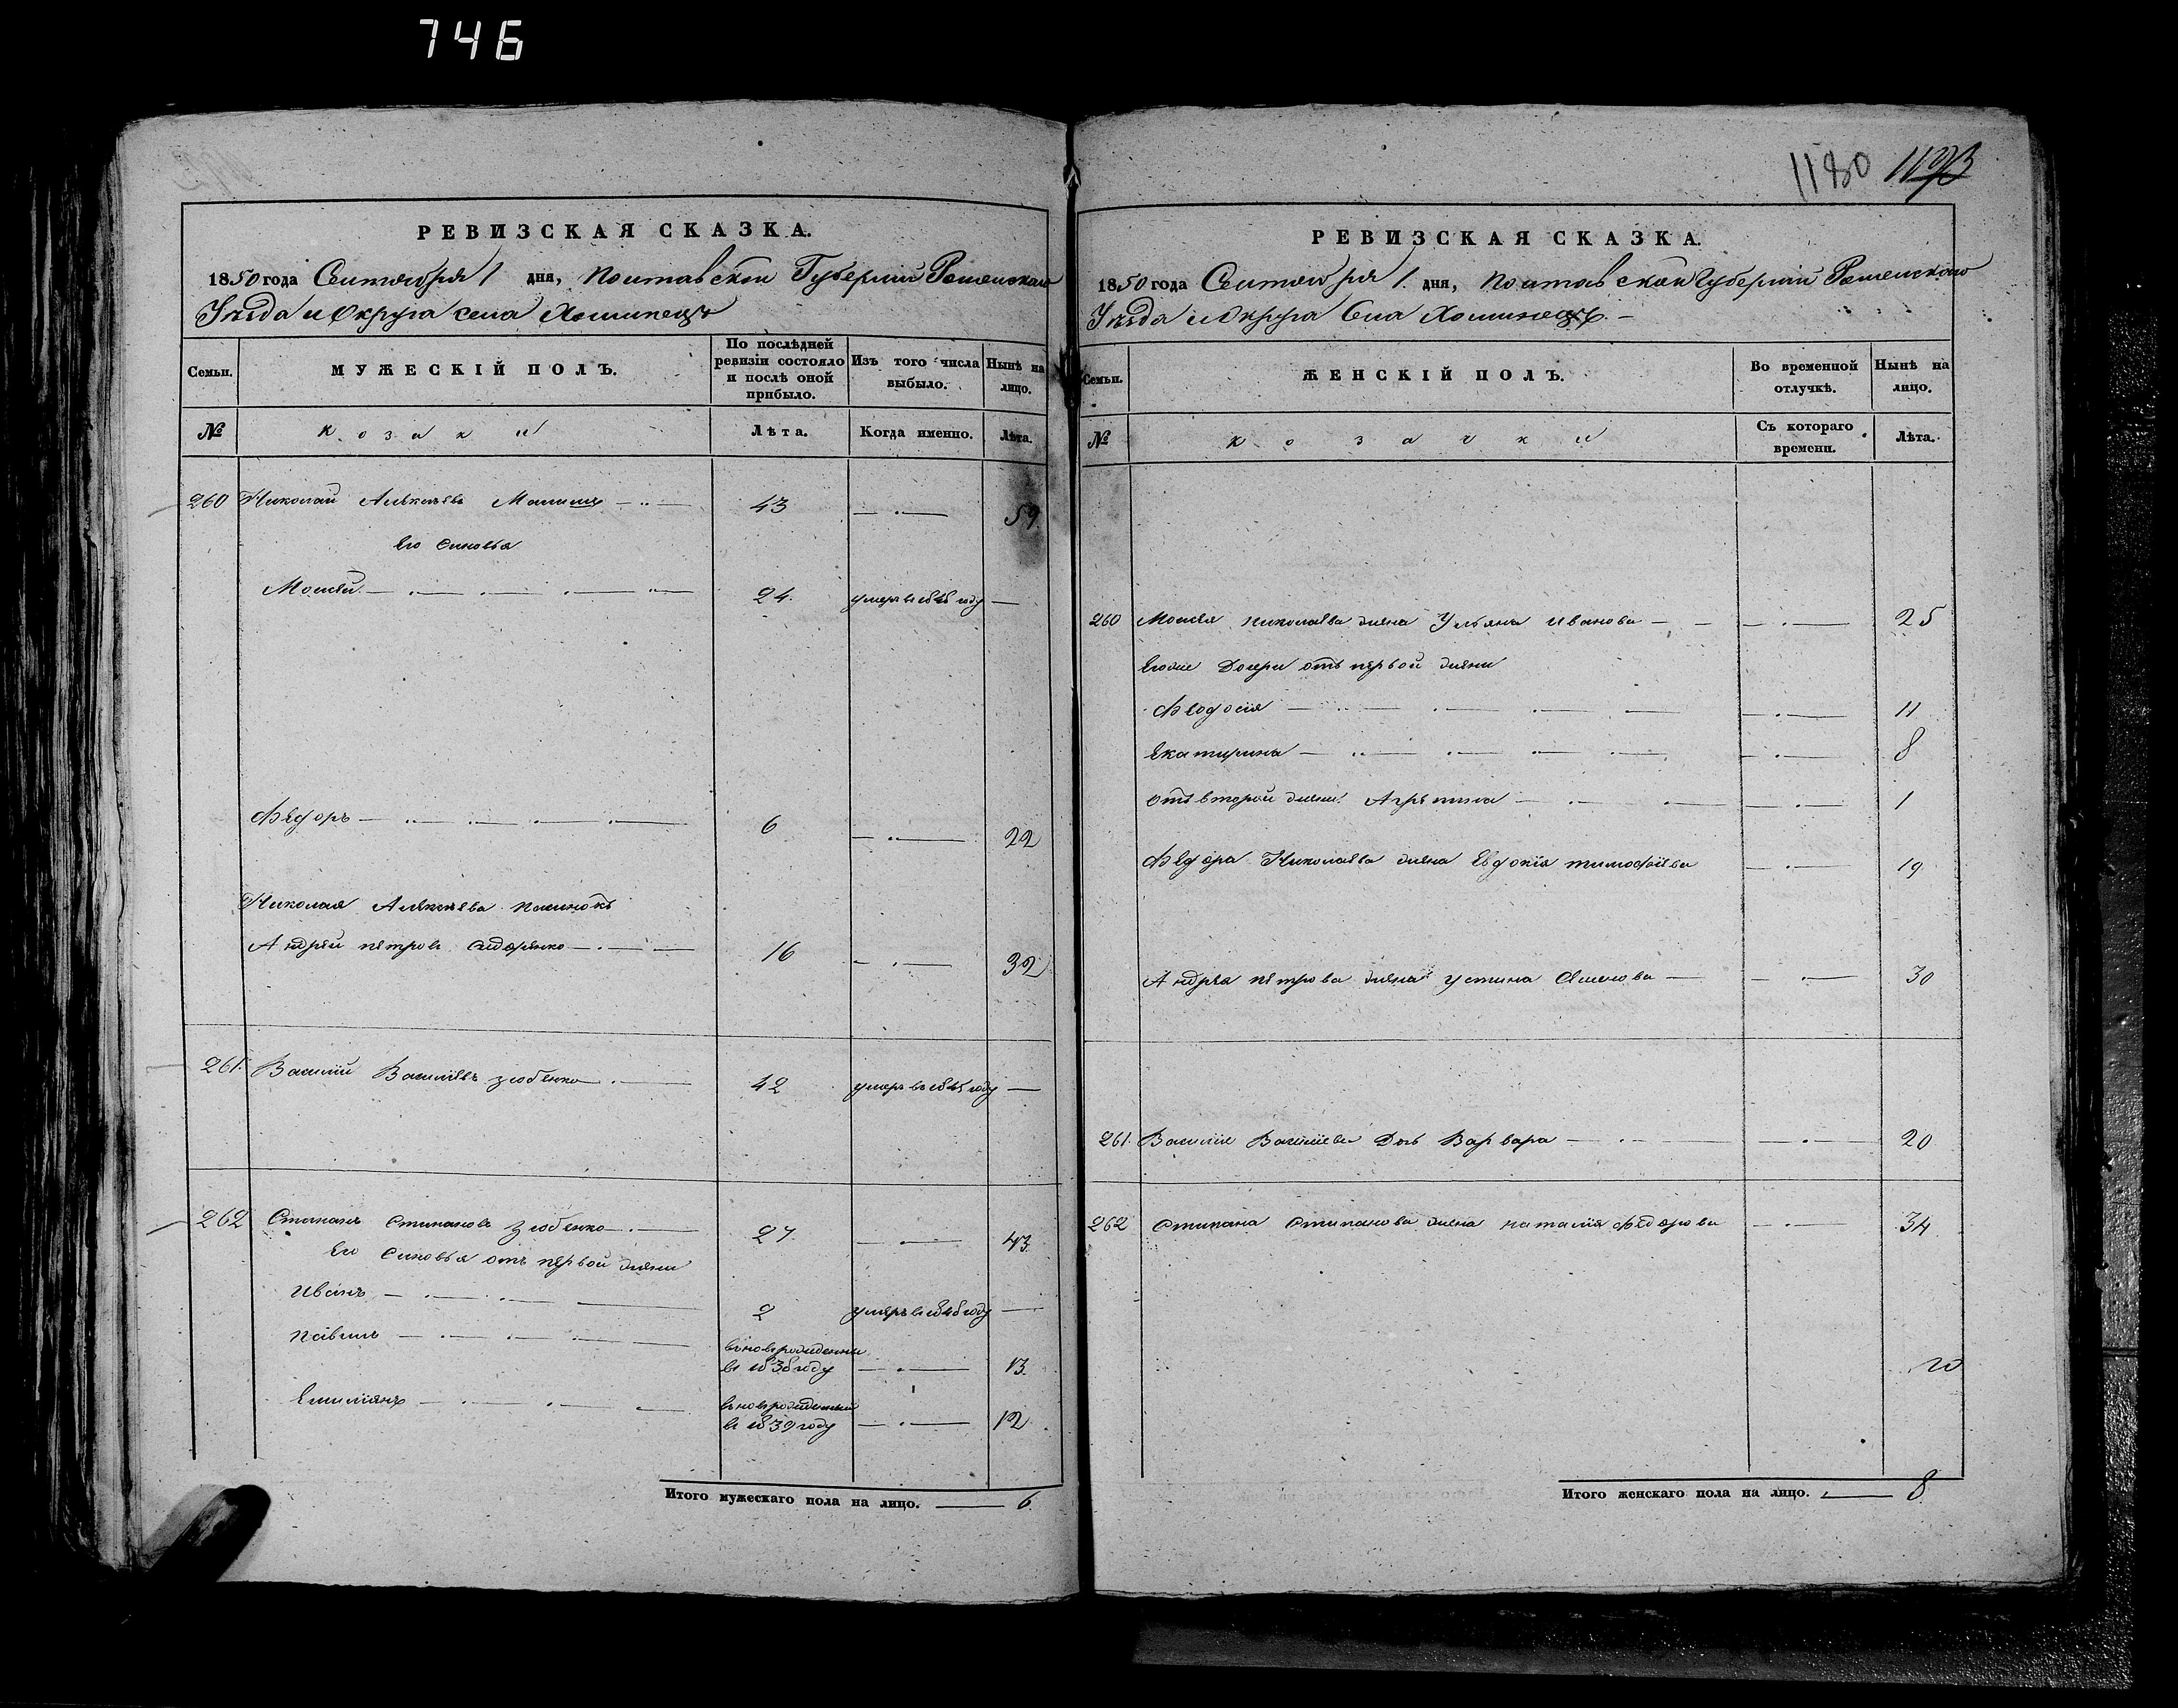 746
1180 1193
РЕВИЗСКАЯ СКАЗКА.
1850 года Сентября 1 дня, Полтавской Губернии Роменскаго
Уезда и Округа села Хоминецъ
Семьи.
МУЖЕСКІЙ ПОЛЪ.
По послѣдней ревизіи состояло и послѣ оной прибыло.
Изъ того числа выбыло.
Нынѣ на лицо.
№
козаки
Лѣта.
Когда именно.
Лѣта.
260 Николай Алексѣевъ 43 59
Его Сыновья
Моисей 24 умеръ в 1848 году
Федоръ 6 22
Николая Алексѣева пасинокъ
Андрей Петровъ Сидоренко 16 32
261. Василий Васильевъ Зюбенко 42 умеръ въ 1845 году
262 Степанъ Степановъ Зюбенко 27 43
Его Сыновья отъ первой жены
Иванъ 2 умеръ в 1848 году
Павелъ вновьрожденный в 1838 году 13
Емилиянъ вновьрожденный в 1839 году 12
Итого мужескаго пола на лицо. 6.
РЕВИЗСКАЯ СКАЗКА.
1850 года Сентября 1 дня, Полтавской Губернии Роменскаго
Уезда и Округа Села Хоминецъ
Семьи.
ЖЕНСКІЙ ПОЛЪ.
Во временной отлучкѣ.
Нынѣ на лицо.
№
козачки
Съ котораго времени.
Лѣта.
260 Моисея Николаева жена Ульяна Иванова 25
Егоже Дочери отъ первой жены
Феодосия 11
Екатерина 8
отъ второй жены Агрепина 1
Федора Николаева жена Евдокия Тимофеева 19
Андрея Петрова жена Устина Семенова 30
261. Василия Васильева Дочь Варвара 20
262 Степана Степанова жена Наталия Федорова 34
Итого женскаго пола на лицо. 8.